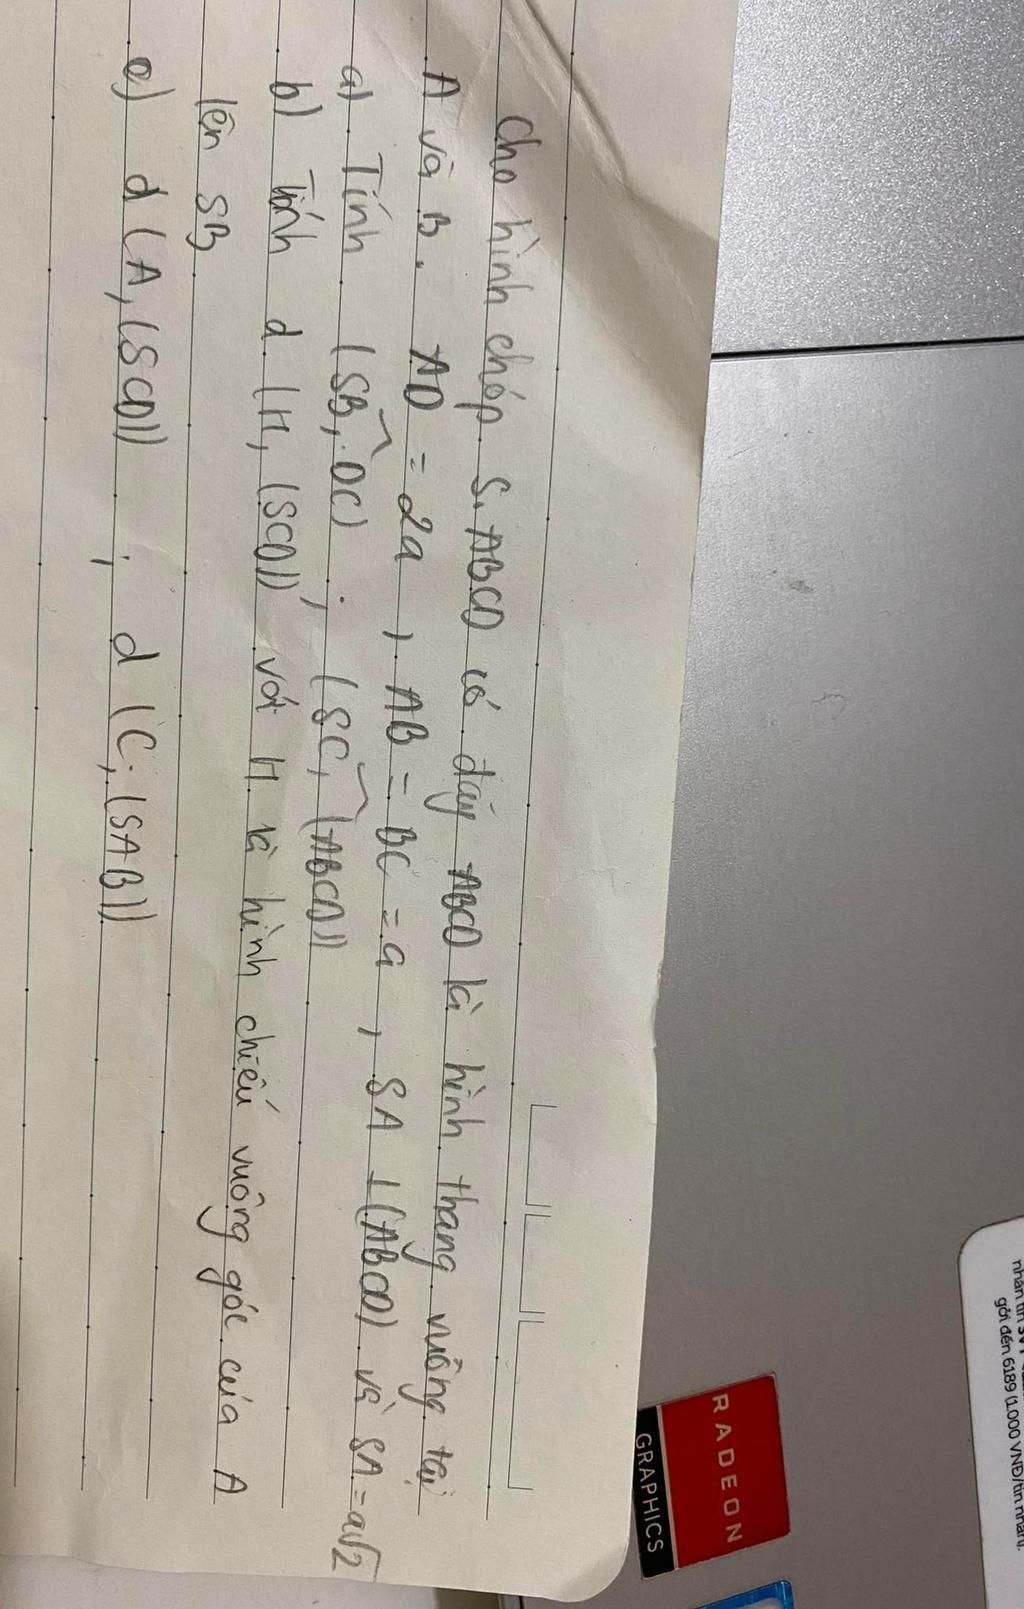 Cho hình chóp S.ABCD có đáy ABCD là hình thang vuông tại
A và B. AD = 2a, AB = BC = a, SA ⊥ (ABCD) và SA = a√2
a) Tính (SB, DC); (SC, (ABCD))
b) Tính d (H, (SCD)) với H là hình chiếu vuông góc của A
lên SB
c) d (A, (SCD)); d (C, (SAB))
RADEON
GRAPHICS
gởi đến 6189 (1.000 VNĐ/tin nhắn).